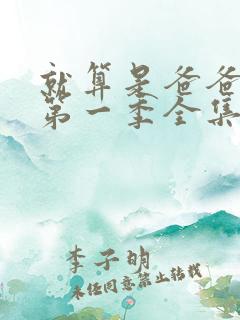 就算是爸爸
第一季全集
李子明
未经同意禁止转载